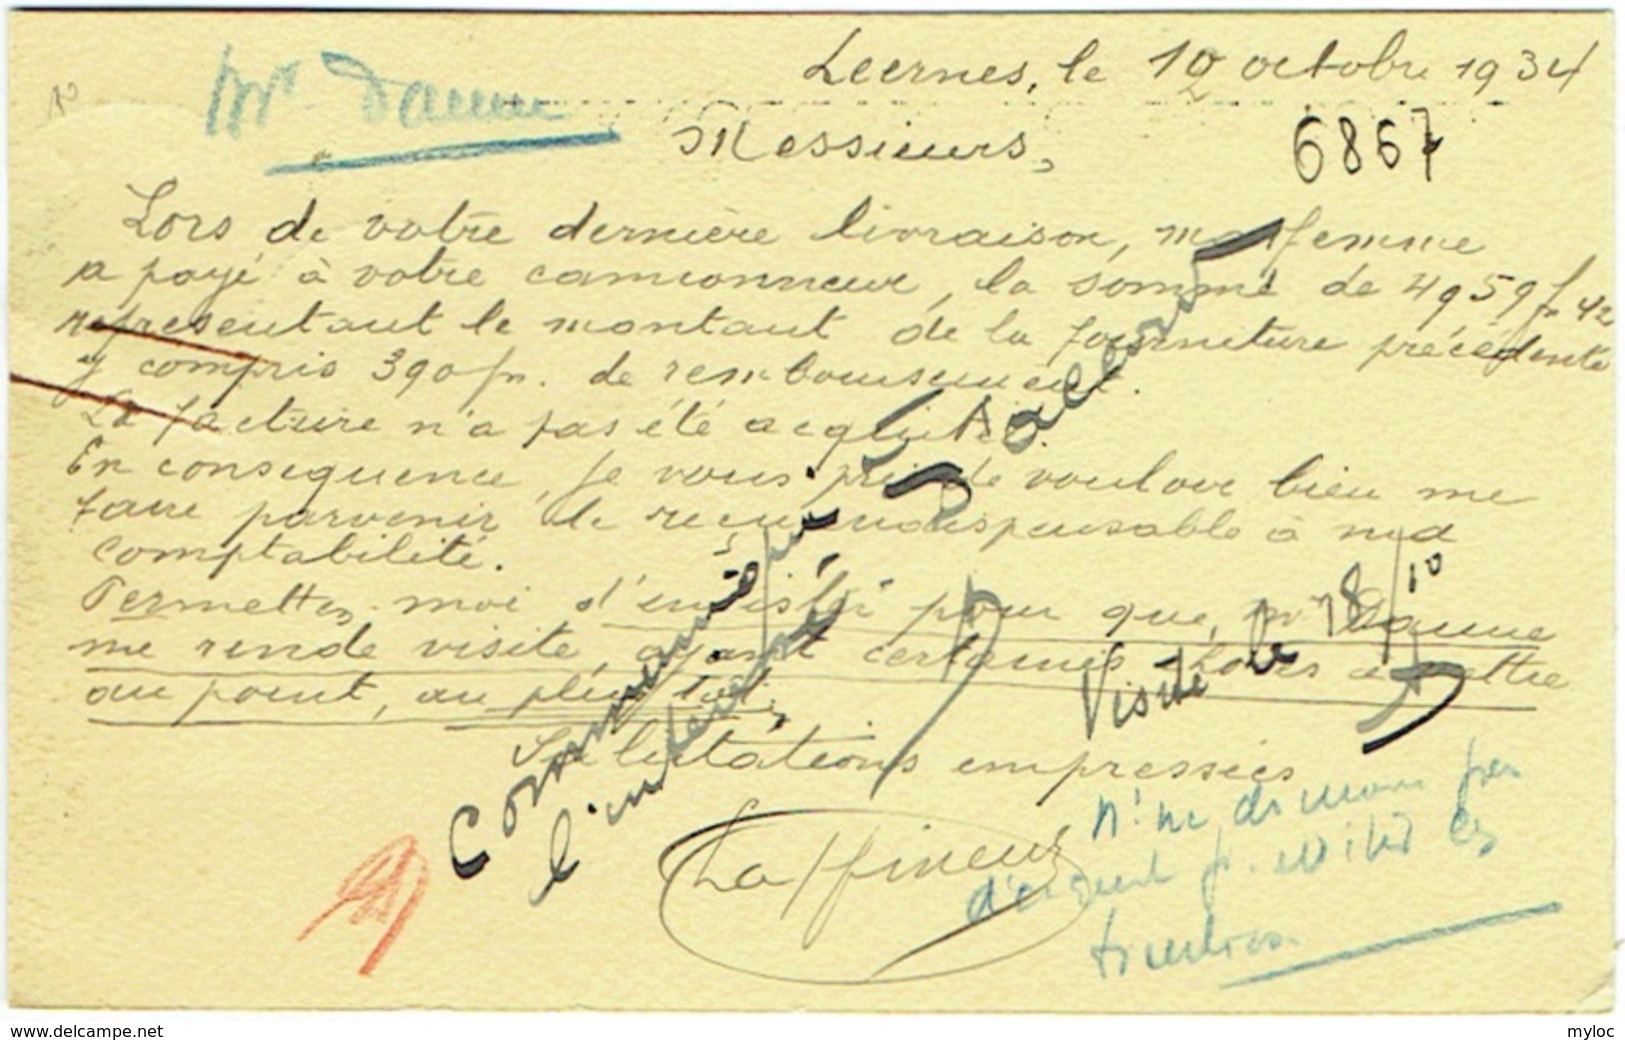 Mr Daune
Leernes, le 12 octobre 1934
Messieurs,
6867
Lors de votre dernière livraison, ma femme
a payé à votre camionneur, la somme de 4959f 42
représentant le montant de la fourniture précédente
y compris 390 fr. de remboursement.
La facture n'a pas été acquittée.
En consequence, je vous prie de vouloir bien me
faire parvenir le reçu indispensable à ma
comptabilité.
Permettez moi d'insister pour que, Mr Daune
me rende visite, ayant certaines choses à mettre
au point, au plus tôt.
Salutations empressées
Laffineur
Communiqué par
l'intéressé
Visité le 18/10
n'
d'argent
www.delcampe.net
myloc